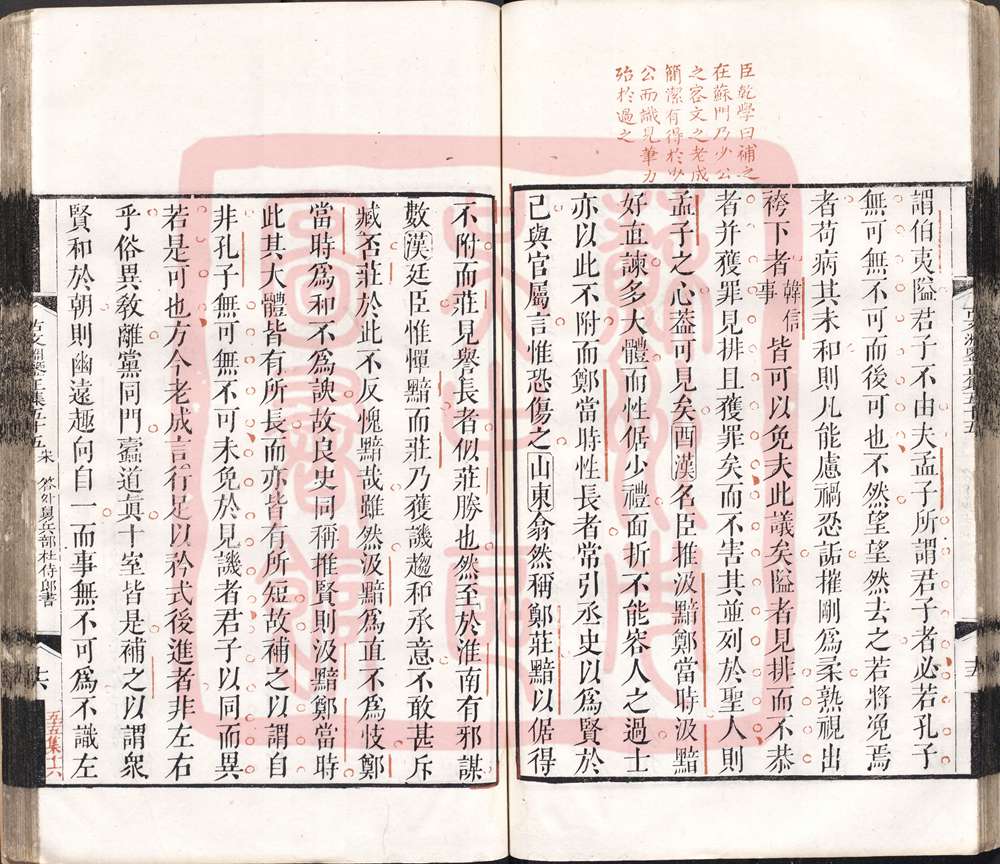 臣乾學曰補之
在蘇門乃少公
之客文之老成
簡潔有得於少
公而識見筆力
殆於過之
謂伯夷隘君子不由夫孟子所謂君子者必若孔子
無可無不可而後可也不然望望然去之若將浼焉
者苟病其未和則凡能慮禍恐詬摧剛爲柔熟視出
袴下者韓信事皆可以免夫此議矣隘者見排而不恭
者并獲罪見排且獲罪矣而不害其並列於聖人則
孟子之心葢可見矣西漢名臣推汲黯鄭當時汲黯
好直諫多大體而性倨少禮面折不能容人之過士
亦以此不附而鄭當時性長者常引丞史以爲賢於
己與官屬言惟恐傷之山東翕然稱鄭莊黯以倨得
不附而莊見譽長者似莊勝也然至於淮南有邪謀
數漢廷臣惟憚黯而莊乃獲譏趨和承意不敢甚斥
臧否莊於此不反愧黯哉雖然汲黯爲直不爲忮鄭
當時爲和不爲諛故良史同稱推賢則汲黯鄭當時
此其大體皆有所長而亦皆有所短故補之以謂自
非孔子無可無不可未免於見譏者君子以同而異
若是可也方今老成言行足以矜式後進者非左右
乎俗異敎離黨同門蠹道眞十室皆是補之以謂衆
賢和於朝則幽遠趣向自一而事無不可爲不識左
古文淵鑒正集五十五 宋 答外舅兵部杜侍郎書
十六
五五集十六